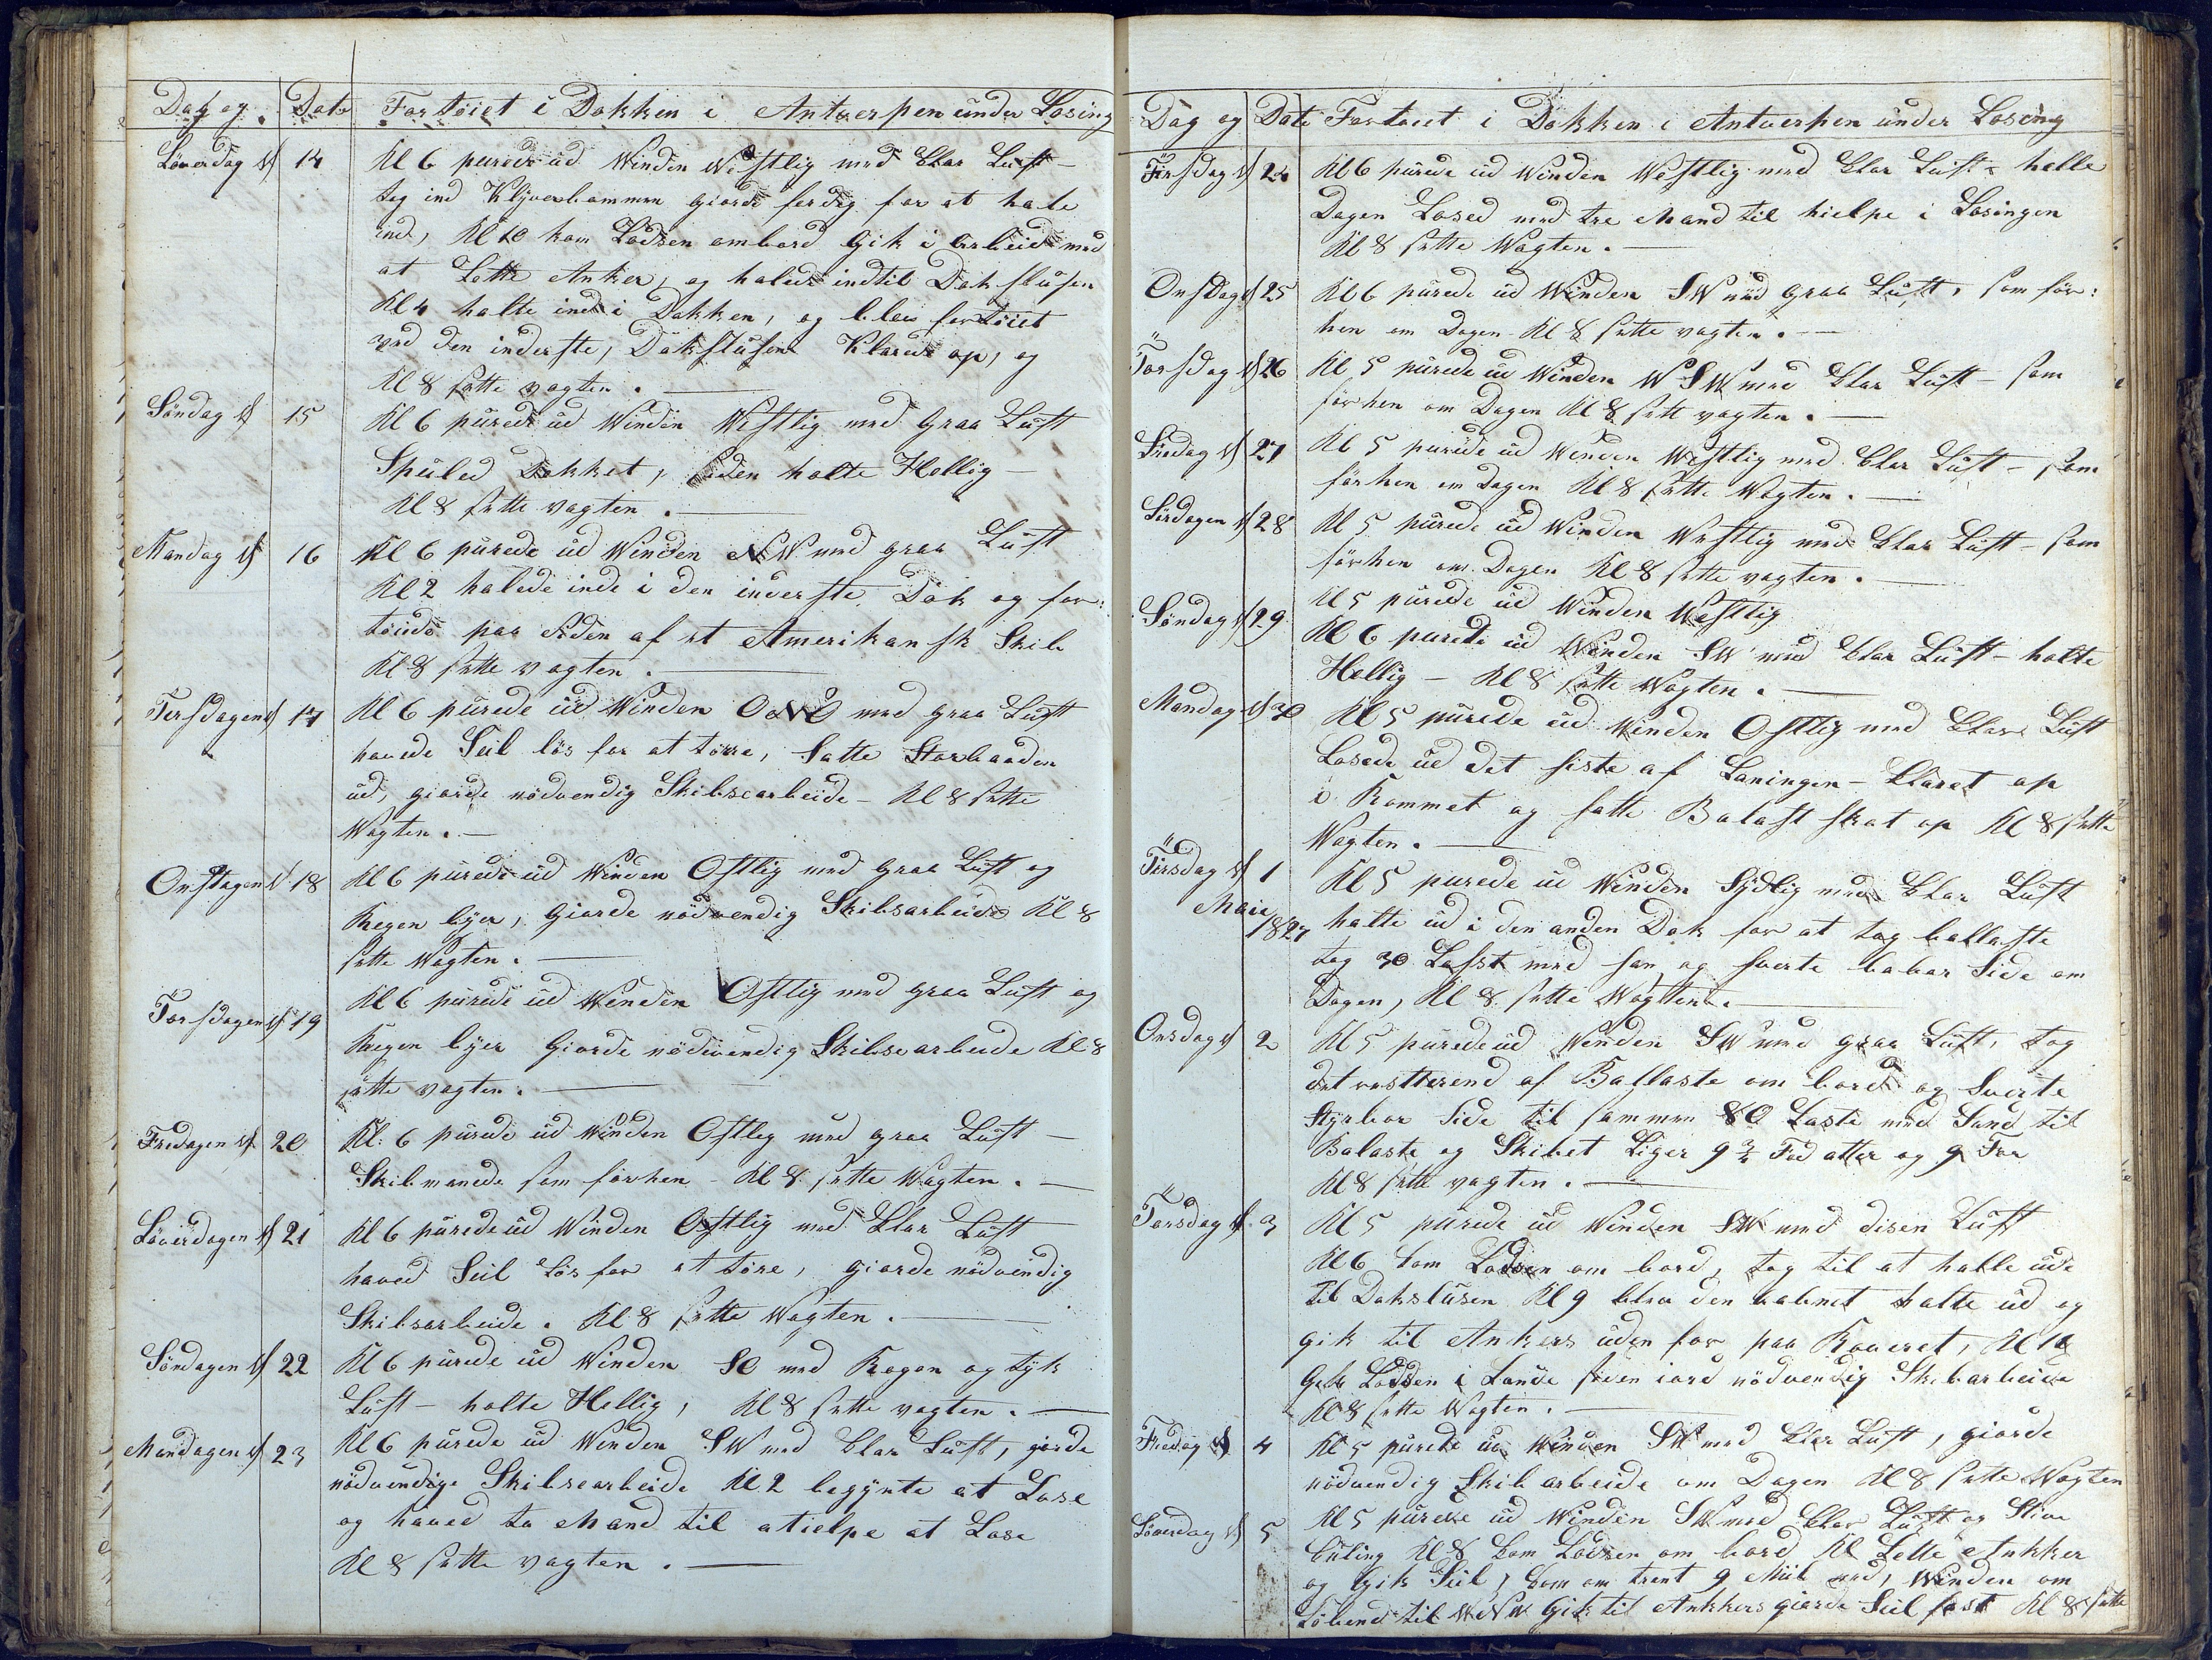 Dag og Dato Fortøiet i Dokken i Antverpen ünder Losing
Løverdag d 14 Kl 6 purede ud Winden Westlig med klar Luft -
tog ind Klyverbommen giorde ferdig for at hale
ind, Kl 10 kom Lodsen ombord Gik i Arbeide med
at Lette Anker, og halede indtil Dok slusen
Kl 4 halte ind i Dokken, og blev fortøiet
ved den inderste, Dokslusen Klarede op, og
Kl 8 satte vagten.
Søndag d 15 Kl 6 purede ud Winden Westlig med Graa Luft
Spuled Dekket, siden holte Hellig -
Kl 8 sette vagten.
Mandag d 16 Kl 6 purede ud Winden NW med graa Luft
Kl 2 halede inde i den inderste Dok og for:
tøiede paa siden af et Amerikansk Skib
Kl 8 sette vagten.
Tirsdagen d 17 Kl 6 purede ud Winden ONO med graa Luft
havede Seil løs for at tørre, Satte Storbaaden
ud, giorde nødvendig Skibsearbeide - Kl 8 sette
Wagten. -
Onstagen d 18 Kl 6 purede ud Winden Ostlig med graa Luft og
Regen byer, Giorde nødvendig Skibsarbeide Kl 8
sette Wagten.
Torsdagen d 19 Kl 6 purede ud Winden Ostlig med graa Luft og
Regen byer Giorde nødvendig Skibsearbeide Kl 8
sette vagten.
Fredagen d 20 Kl: 6 purede ud Winden Ostleg med graa Luft -
Skibmanede som førhen - Kl 8 sette Wagten. -
Løverdagen d 21 Kl 6 purede ud Winden Ostlig med klar Luft
haved Seil Løs for at tøre, giorde nødvendig
Skibsarbeide. Kl 8 sette Wagten.
Søndagen d 22 Kl 6 purede ud Winden SO med Regen og tyk
Luft - holte Hellig, Kl 8 sette vagten.
Mandagen d 23 Kl 6 purede ud Winden SW med klar Luft, giorde
nødvendige Skibsearbeide Kl 2 begynte at Lose
og haved to Mand til athielpe at Lose
Kl 8 sette vagten.
Dag og Dato Fortøiet i Dokken i Antverpen under Losing
Tirsdag d 24 Kl 6 purede ud Winden Westlig med klar Luft - helle
Dagen Losed med tre Mand til hielpe i Losingen
Kl 8 sette Wagten.
Onsdag d 25 Kl 6 purede ud Winden SW med graa Luft, som før:
hen om Dagen Kl 8 sette vagten.
Torsdag d 26 Kl 5 purede ud Winden WSW med klar Luft - som
førhen om Dagen Kl 8 sett vagten.
Fredag d 27 Kl 5 purede ud Winden Westlig med klar Luft - som
førhen om Dagen Kl 8 sette Wagten.
Lørdagen d 28 Kl 5 purede ud Winden Westlig med klar Luft - som
førhen om Dagen Kl 8 sette vagten.
Kl 5 purede ud Winden Westlig
Søndag d 29 Kl 6 purede ud Winden SW med klar Luft - holte
Hellig - Kl 8 sette Wagten.
Mandag d 30 Kl 5 purede ud Winden Ostlig med klar Luft
Losede ud det siste af Laningen - klaret op
i Rommet og satte Balast skot op Kl 8 sette
Wagten.
Tirsdag d 1 Kl 5 purede ud Winden Sydlig med klar Luft
Maii 1827 halte ud i den anden Dok for at tag ballaste
tog 30 Lasst med san og sverte babor Side om
Dagen, Kl 8 sette Wagten.
Onsdag d 2 Kl 5 purede ud Winden SW med graa Luft, tog
det resterend af Ballaste om bord og Sverte
Styrbor Side til sammen 80 Laste med Sand til
Balaste og Skibet Liger 9 3/4 Fod atter og 9 For
Kl 8 sette vagten.
Torsdag d 3 Kl 5 purede ud Winden SW med disen Luft
Kl 6 kom Lodsen om bord, tog til at halle ude
til Dokslusen Kl 9 blev den aabnet halte ud og
gik til Ankers uden for paa Raaveret, Kl 10
Gik Lodsen i Lande siden iord nødvendig Skibarbeide
Kl 8 sette Wagten.
Fredag d 4 Kl 5 purede ud Winden SW med klar Luft, giorde
nødvendig Skib arbeide om Dagen Kl 8 sette Wagten
Løverdag d 5 Kl 5 purede ud Winden SW med klar Luft og Stive
kuling Kl 8 kom Lodsen om bord Kl Lette Ankker
og Gik Seil, kom om trent 9 Miil ned, Winden om
Løbend til WNW Gik til Ankkers giorde Seil fast Kl 8 sette